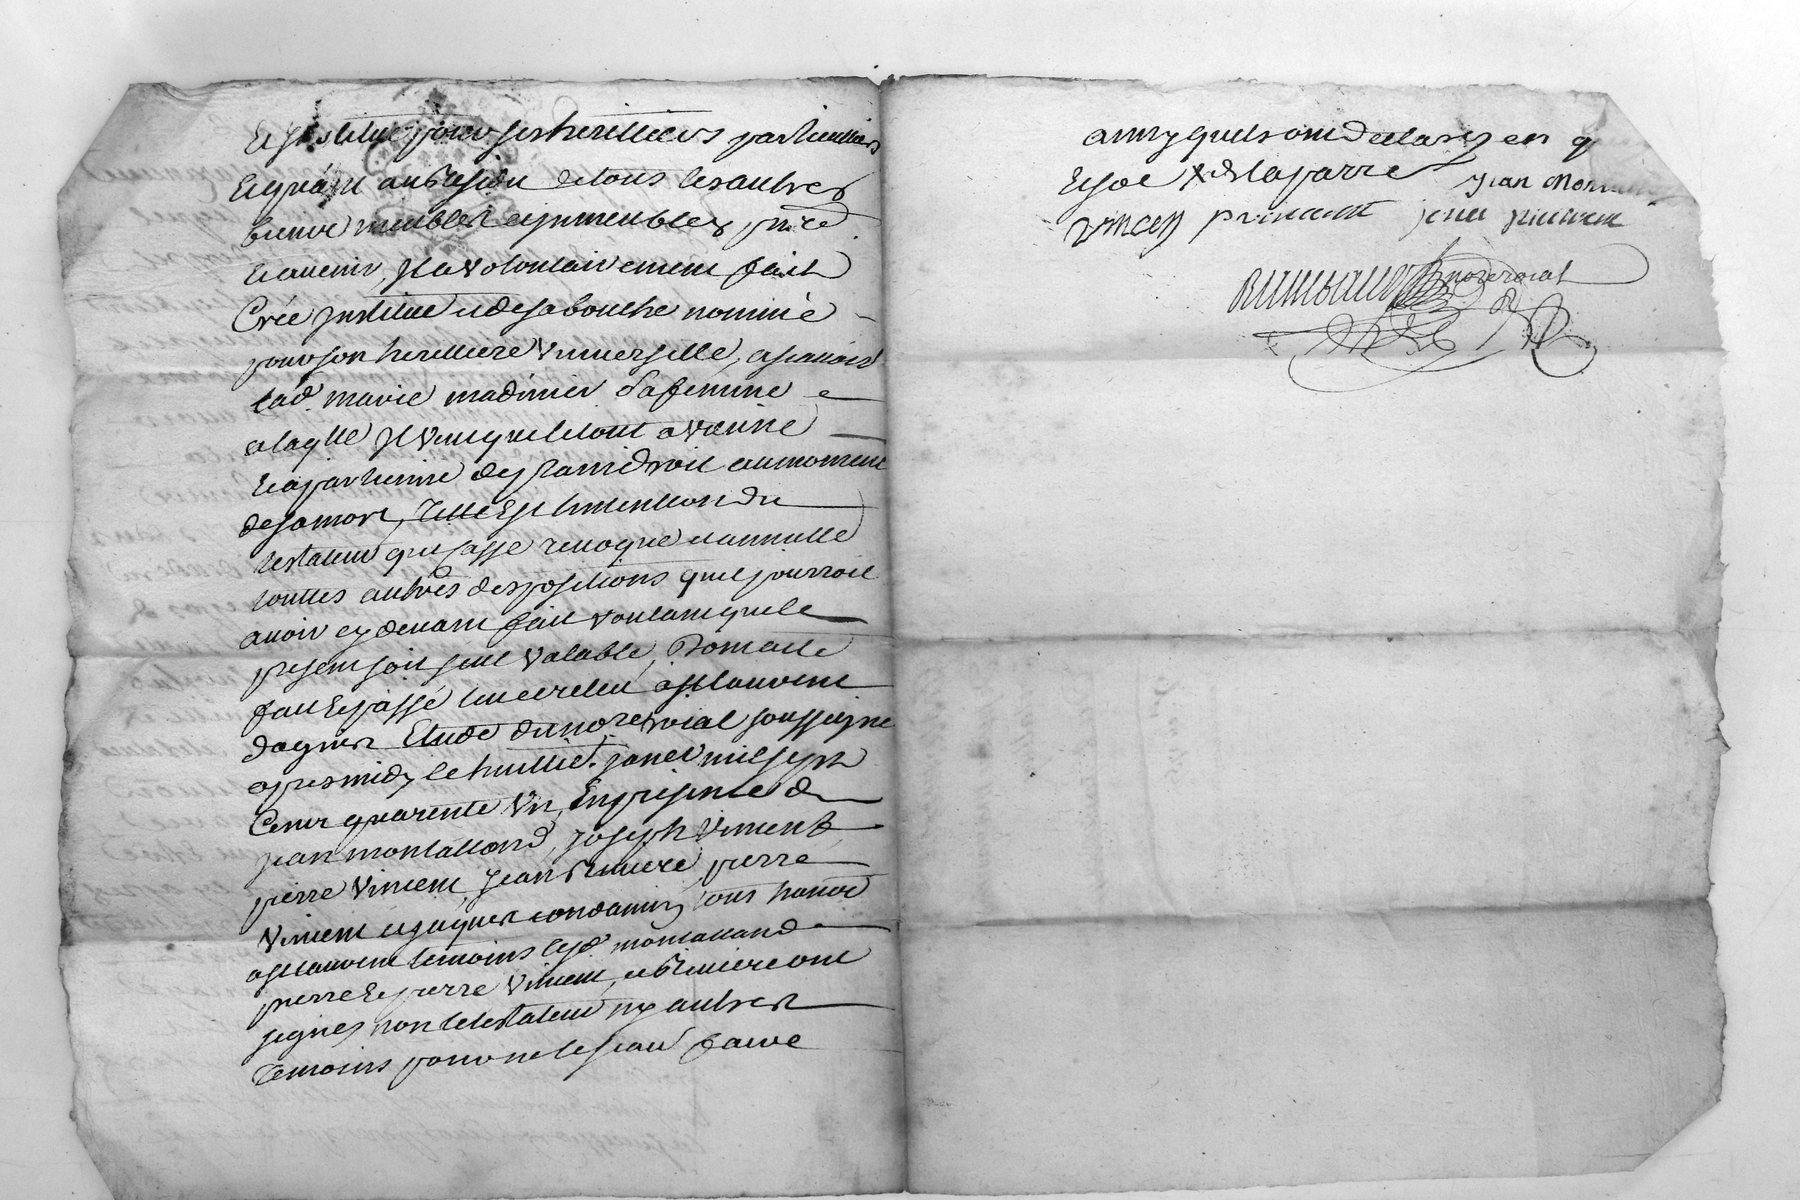 Et Jnstitue pour ses heritiers particuliers
Et quant au Residu de tous les autres
biens meubles et jmmeubles pnts
et auenir Jl a volontairement fait
Crée Jnstitue et de sa bouche nommé
pour son heritiere vniuerselle, ascauoir
lad. marie madinier sa femme
a laqlle Jl veut que le tout avienne
Et apartienne de plain droit au moment
de sa mort, Telle Est lintention du
testateur qui Casse reuoque et annulle
touttes autres dispositions quil pourroit
auoir cy deuant fait voulant que le
present soit seul valable, Dont acte
fait Et passé lu et releu a st laurent
dagnier Etude du nore roial soussigné
apres midy le huittie. januer mil sept
Cent quarente vn, En presence de
jean montalland, joseph vincent
pierre vincent, jean Riuiere, pierre
vincent et jaques condamin, tous hanor
a st laurent temoins lesd montalland
pierre Et pierre vincent, et Riuiere ont
signes non le testateur ny autres
temoins pour ne le scauoir faire
ainsy quils ont declares en q
Et soe x de la parre jean Mon
vincen p vincent jean riuiere
nore roial